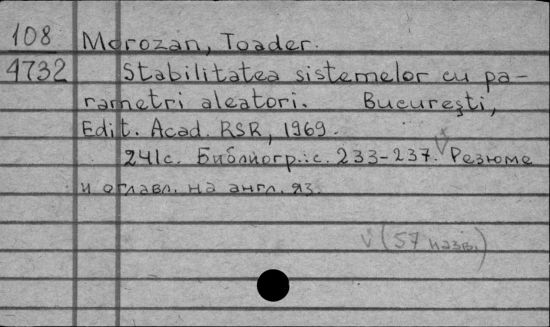 108 Morozan, Toader.
4732 Stabilitatea sistemelor cu pa-
rametri aleatori. București,
Edit. Acad. RSR, 1969.
241c. Библиогр.: с. 233-237. Резюме
и оглавл. на англ. яз.
(57 назв.)